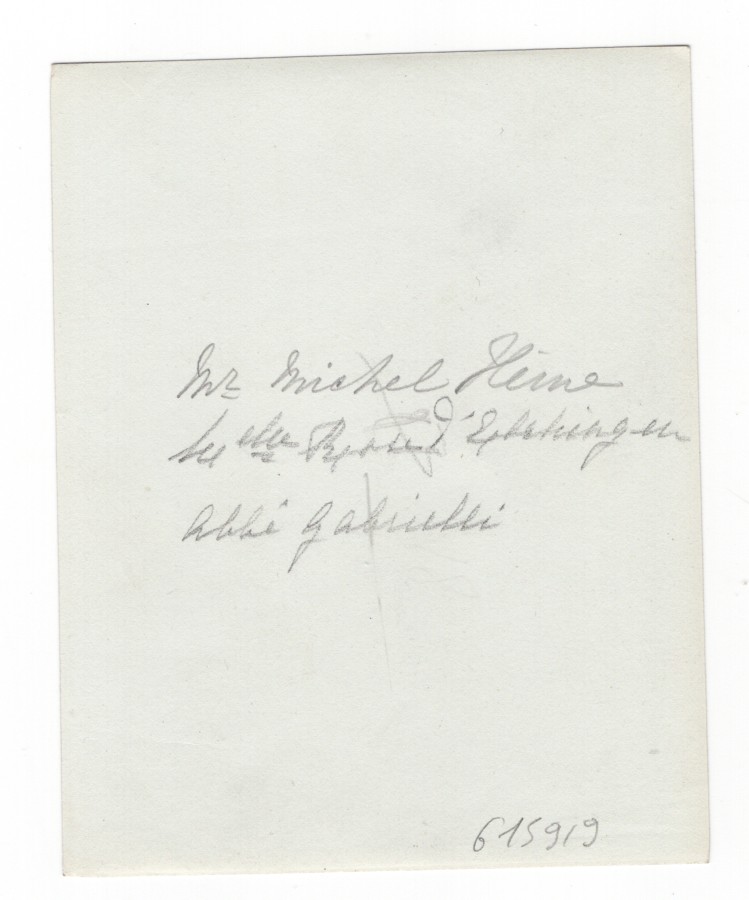 Mr Michel Heine
Melle Rose d'Elchingen
abbé Gabrielli
615919